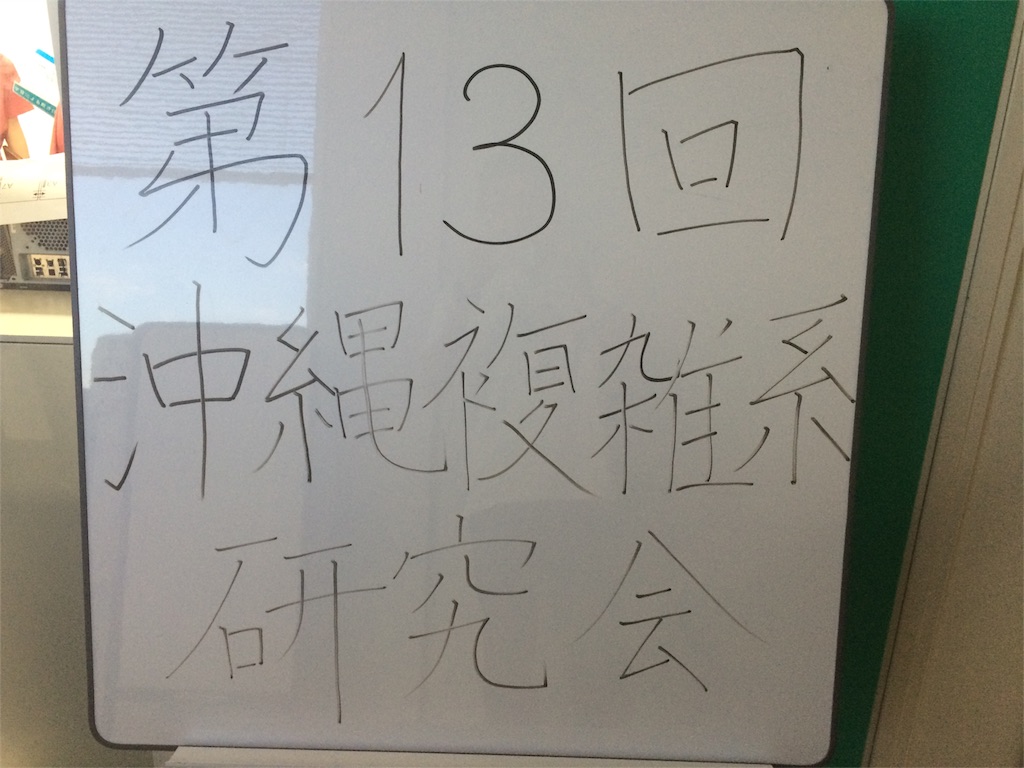 第13回
沖縄複雑系
研究会